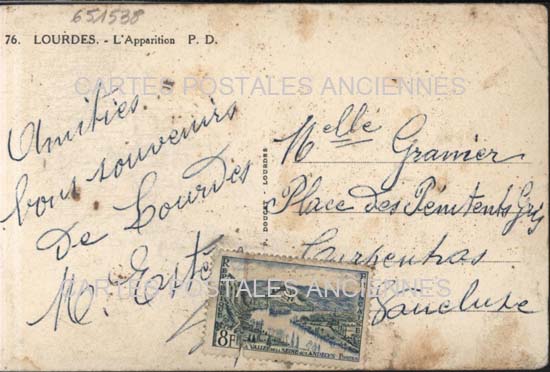 651538
76. LOURDES. - L'Apparition P. D.
CARTES POSTALES ANCIENNES
Amitiés...
bons souvenirs
de Lourdes
M. Estè
P. DOUCET - LOURDES
Melle Granier
Place des Pénitents Gris
Carpentras
Vaucluse
CARTES POSTALES ANCIENNES
8F
LA VALLÉE DE LA SEINE AUX ANDELYS POSTES